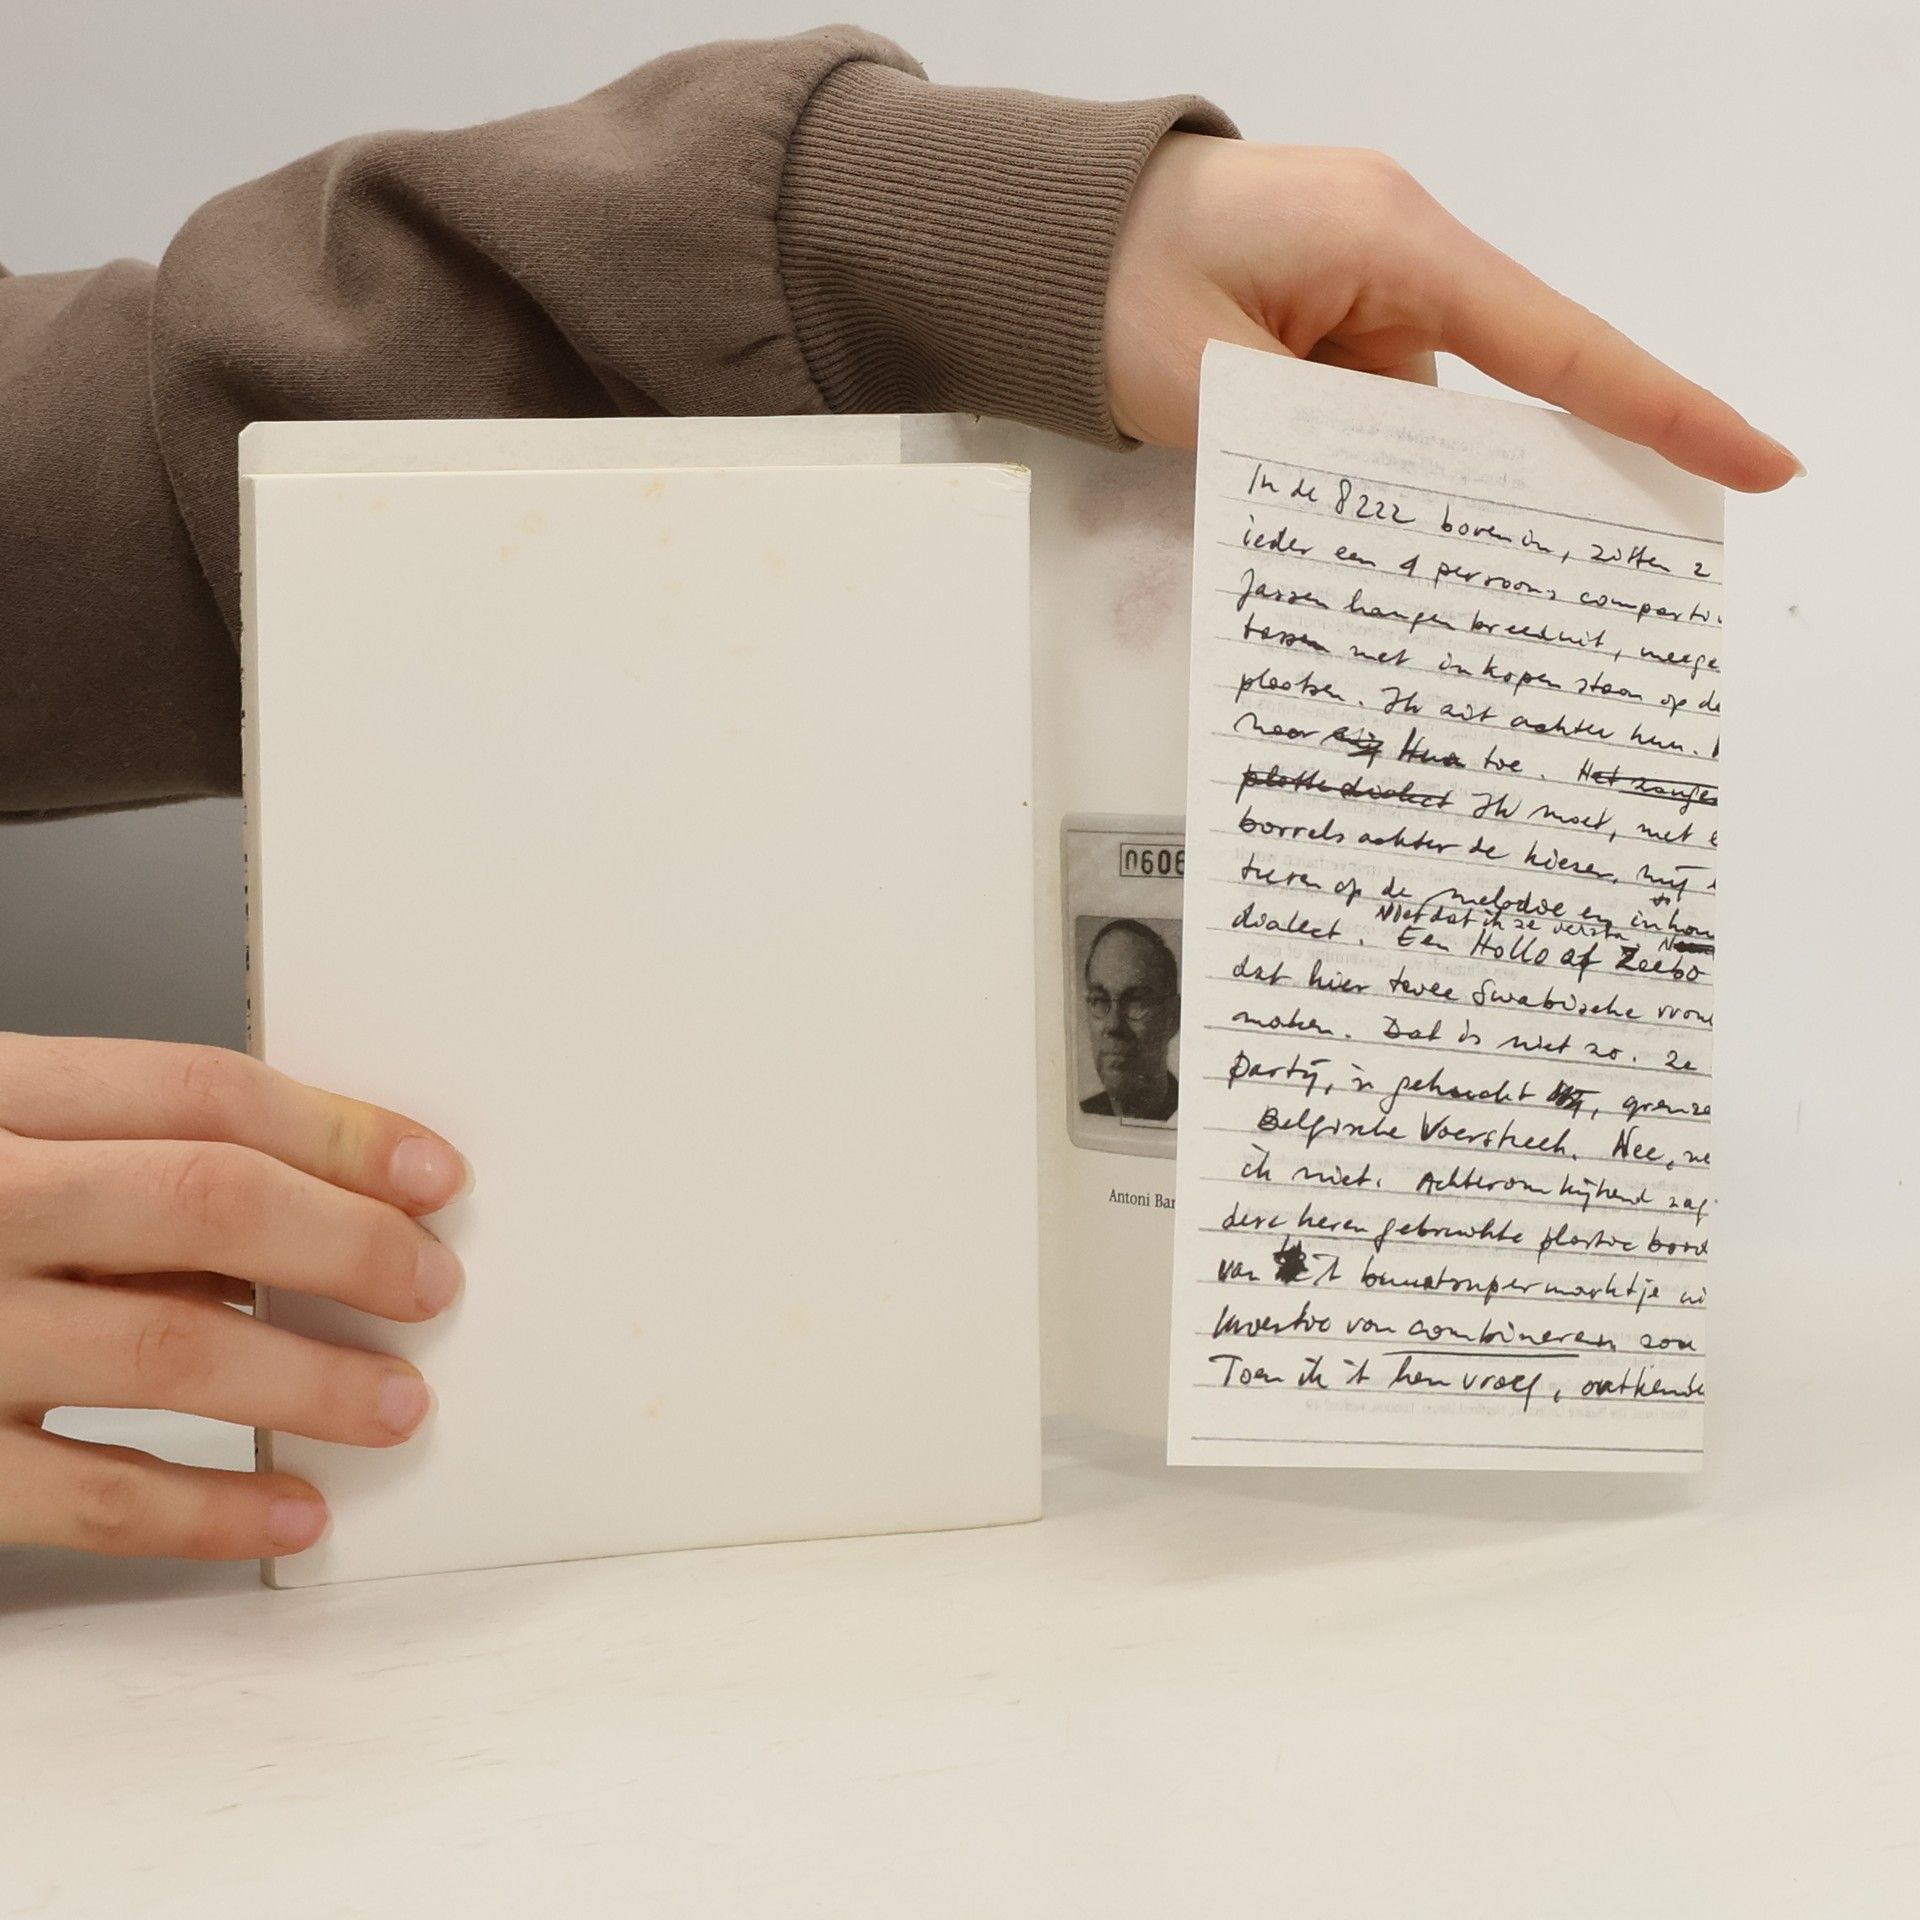 0606
Antoni Bar
In de 8222 bovenin, zitten 2
ieder een 4 persoons comparti
Jassen hangen breeduit, meege
tassen met inkopen staan op de
plaatsen. Ik zit achter hen.
naar toe. Het zanges
platte dialect Ik moet, met
borrels achter de kiezen, mij
tieren op de melodie en inhou
Niet dat ik ze versta.
dialect. Een Hollo of Zeebo
dat hier twee Swabische vrou
maken. Dat is niet zo. Ze
Partij, in gehucht, grenze
Belgische Voerstreek. Nee, ne
ik niet. Achterom kijkend zag
deze heren gebruikte plastic bood
van 't buurtsupermarktje ui
kwestie van combineren zou
Toen ik 't hen vroeg, ontkende